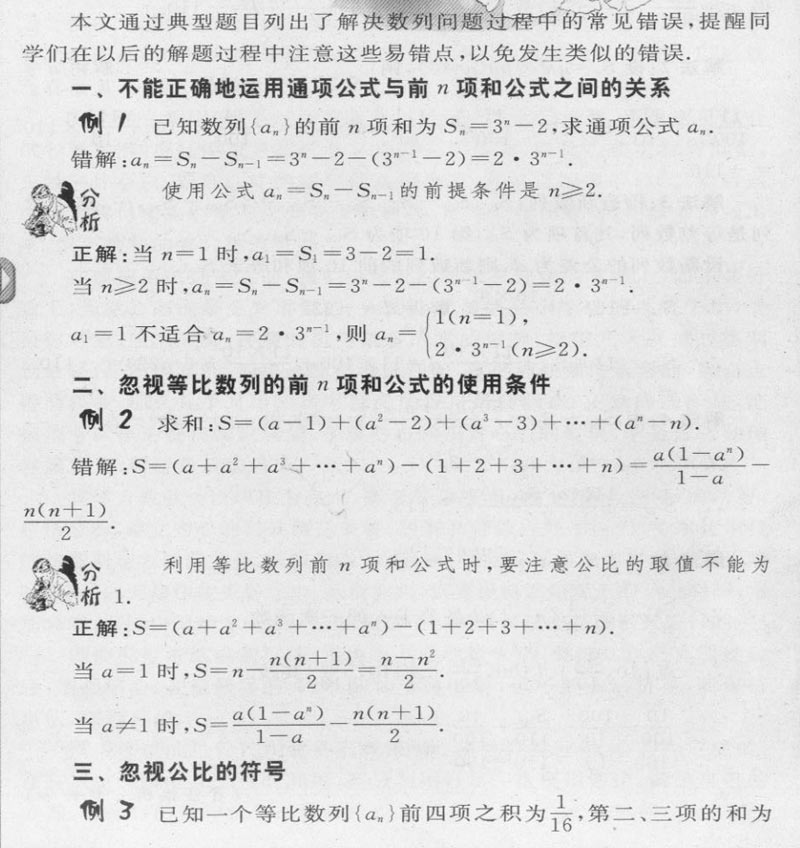 本文通过典型题目列出了解决数列问题过程中的常见错误,提醒同
学们在以后的解题过程中注意这些易错点,以免发生类似的错误.
一、不能正确地运用通项公式与前 n 项和公式之间的关系
例 1 已知数列{aₙ}的前 n 项和为 Sₙ=3ⁿ-2,求通项公式 aₙ.
错解:aₙ=Sₙ-Sₙ₋₁=3ⁿ-2-(3ⁿ⁻¹-2)=2·3ⁿ⁻¹.
分析 使用公式 aₙ=Sₙ-Sₙ₋₁的前提条件是 n≥2.
正解:当 n=1 时,a₁=S₁=3-2=1.
当 n≥2 时,aₙ=Sₙ-Sₙ₋₁=3ⁿ-2-(3ⁿ⁻¹-2)=2·3ⁿ⁻¹.
a₁=1 不适合 aₙ=2·3ⁿ⁻¹,则 aₙ={1(n=1),
2·3ⁿ⁻¹(n≥2).
二、忽视等比数列的前 n 项和公式的使用条件
例 2 求和:S=(a-1)+(a²-2)+(a³-3)+…+(aⁿ-n).
错解:S=(a+a²+a³+…+aⁿ)-(1+2+3+…+n)=a(1-aⁿ)/1-a-
n(n+1)/2.
分析 利用等比数列前 n 项和公式时,要注意公比的取值不能为
1.
正解:S=(a+a²+a³+…+aⁿ)-(1+2+3+…+n).
当 a=1 时,S=n-n(n+1)/2=n-n²/2.
当 a≠1 时,S=a(1-aⁿ)/1-a-n(n+1)/2.
三、忽视公比的符号
例 3 已知一个等比数列{aₙ}前四项之积为1/16,第二、三项的和为